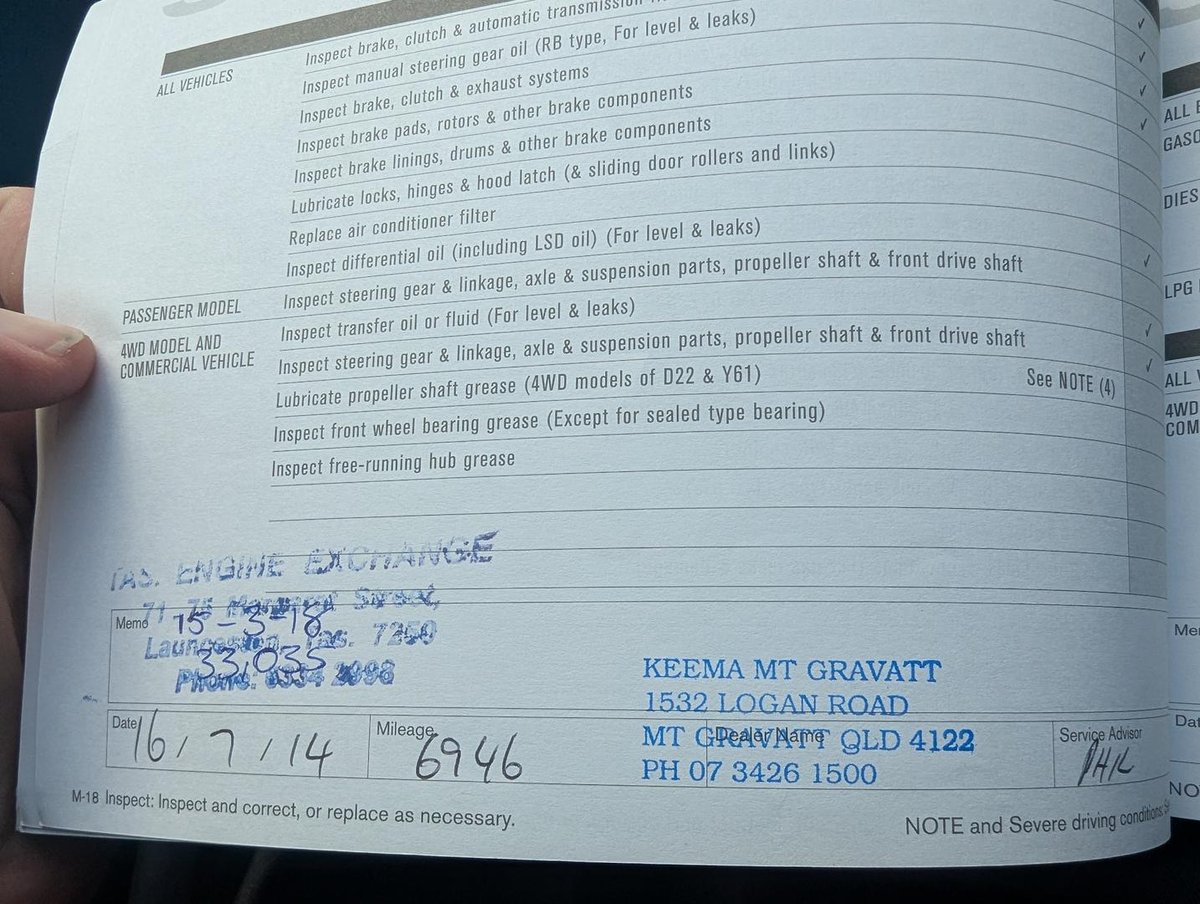 Inspect brake, clutch & automatic transmission
ALL VEHICLES
Inspect manual steering gear oil (RB type, For level & leaks)
Inspect brake, clutch & exhaust systems
Inspect brake pads, rotors & other brake components
Inspect brake linings, drums & other brake components
Lubricate locks, hinges & hood latch (& sliding door rollers and links)
Replace air conditioner filter
Inspect differential oil (including LSD oil) (For level & leaks)
PASSENGER MODEL
Inspect steering gear & linkage, axle & suspension parts, propeller shaft & front drive shaft
4WD MODEL AND
COMMERCIAL VEHICLE
Inspect transfer oil or fluid (For level & leaks)
Inspect steering gear & linkage, axle & suspension parts, propeller shaft & front drive shaft
Lubricate propeller shaft grease (4WD models of D22 & Y61) See NOTE (4)
Inspect front wheel bearing grease (Except for sealed type bearing)
Inspect free-running hub grease
TAS. ENGINE EXCHANGE
71 75 Street,
Launceston, Tas. 7250
Phone: 6334
Memo 15-3-18
33,035
KEEMA MT GRAVATT
1532 LOGAN ROAD
MT GRAVATT QLD 4122
PH 07 3426 1500
Date 16/7/14
Mileage 6946
Dealer Name
Service Advisor
PHIL
M-18 Inspect: Inspect and correct, or replace as necessary.
NOTE and Severe driving conditions:
ALL
DIES
LPG
ALL
4WD
COM
NO